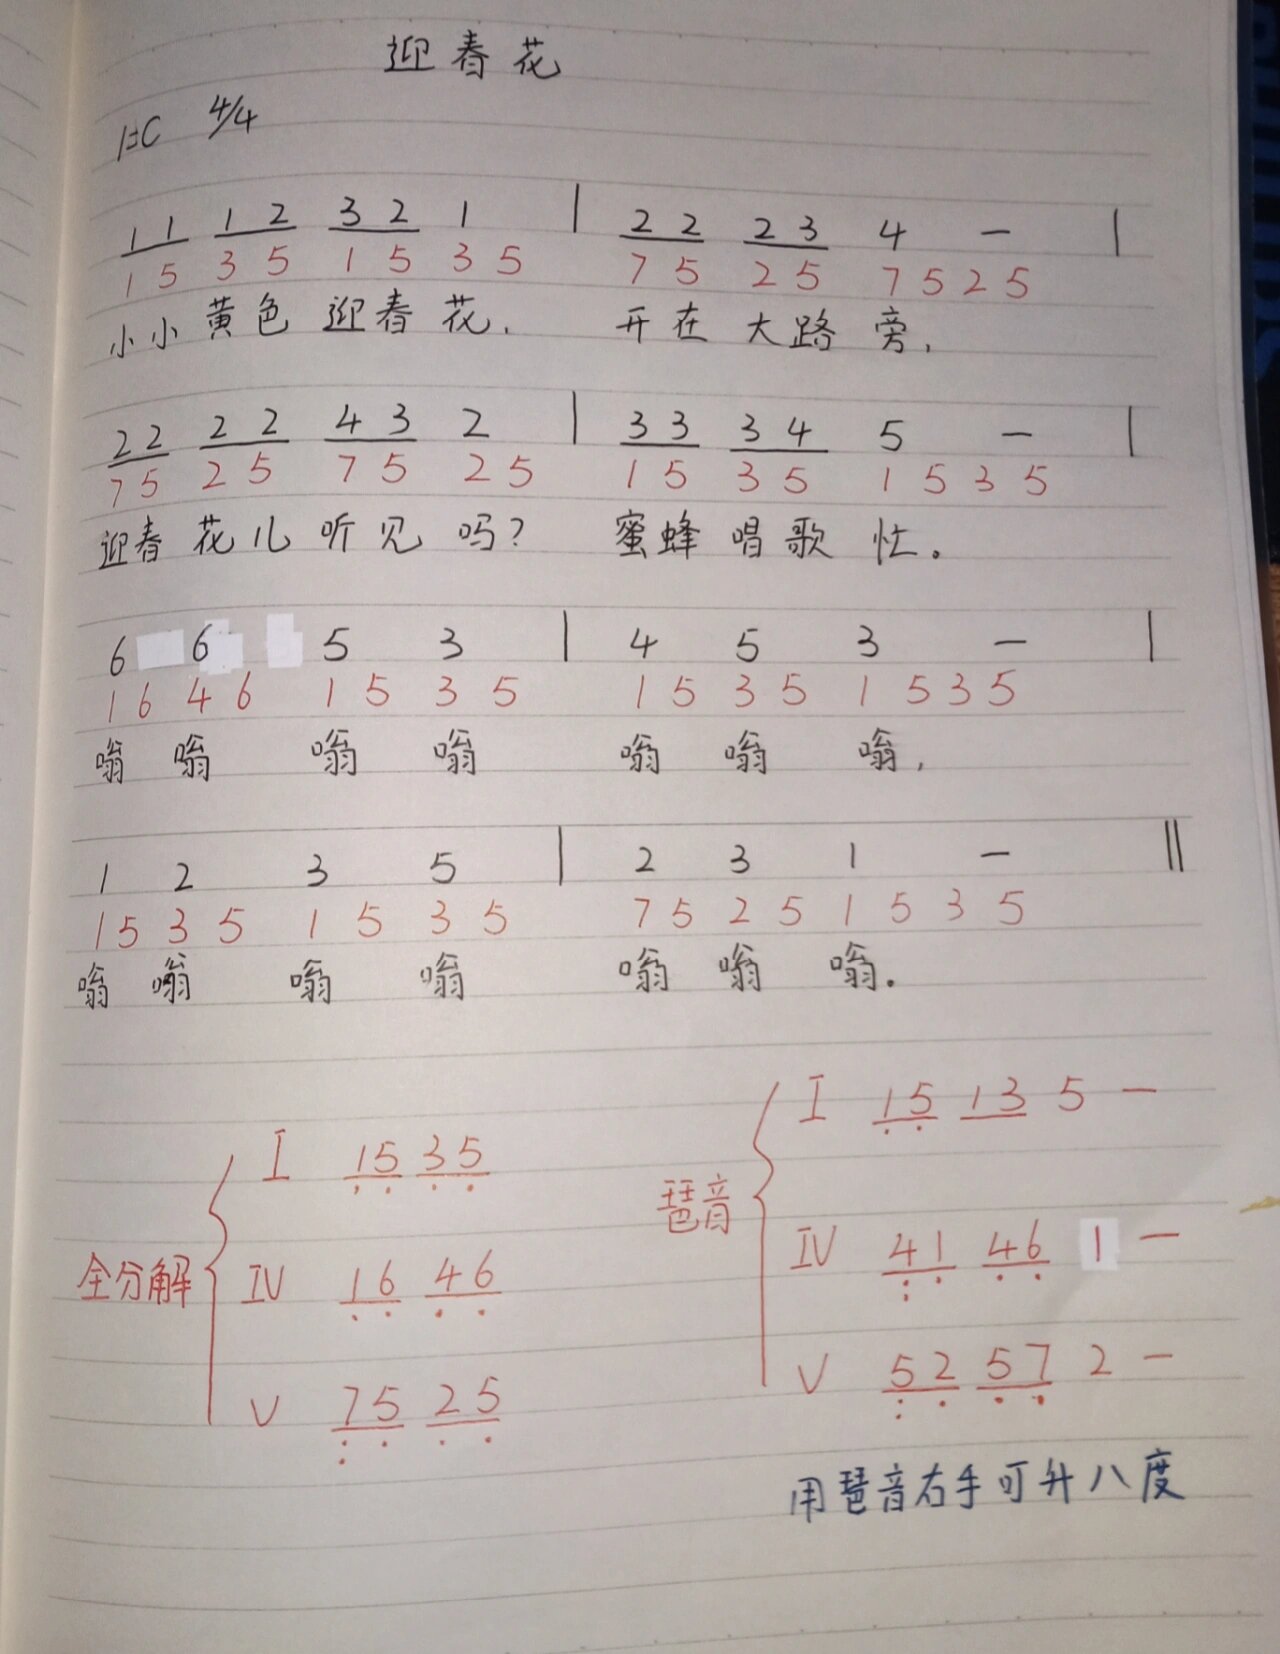 迎春花
1=C 4/4
1 1 1 2 3 2 1 | 2 2 2 3 4 — |
1 5 3 5 1 5 3 5 7 5 2 5 7 5 2 5
小小黄色迎春花. 开在大路旁,
2 2 2 2 4 3 2 | 3 3 3 4 5 — |
7 5 2 5 7 5 2 5 1 5 3 5 1 5 3 5
迎春花儿听见吗? 蜜蜂唱歌忙。
6 6 5 3 | 4 5 3 — |
1 6 4 6 1 5 3 5 1 5 3 5 1 5 3 5
嗡 嗡 嗡 嗡 嗡 嗡 嗡,
1 2 3 5 | 2 3 1 — ‖
1 5 3 5 1 5 3 5 7 5 2 5 1 5 3 5
嗡 嗡 嗡 嗡 嗡 嗡 嗡.
全分解
I 15 35
IV 16 46
V 75 25
琶音
I 15 13 5 —
IV 41 46 1 —
V 52 57 2 —
用琶音右手可升八度